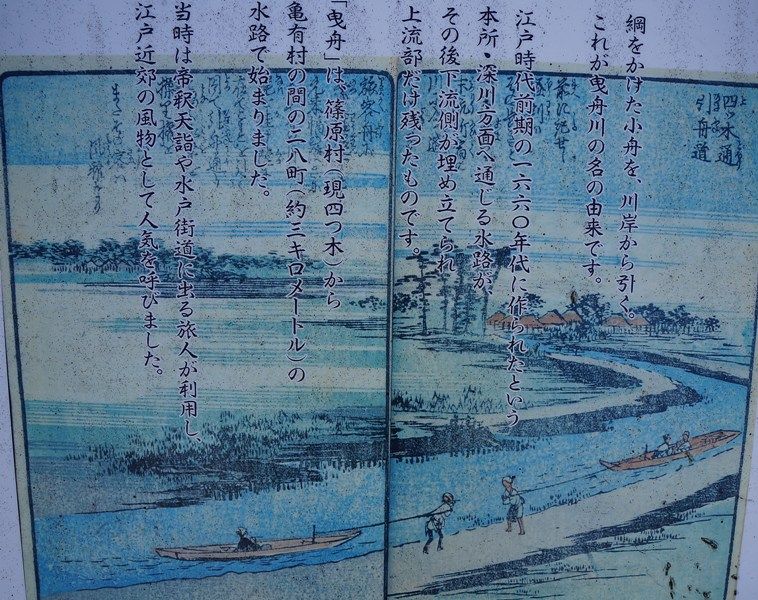 綱をかけた小舟を、川岸から引く。
これが曳舟川の名の由来です。
江戸時代前期の一六六〇年代に作られたという
本所・深川方面へ通じる水路が、
その後下流側が埋め立てられ
上流部だけ残ったものです。
「曳舟」は、篠原村（現四つ木）から
亀有村の間の二八町（約三キロメートル）の
水路で始まりました。
当時は帝釈天詣や水戸街道に出る旅人が利用し、
江戸近郊の風物として人気を呼びました。
四ツ木通
引舟道